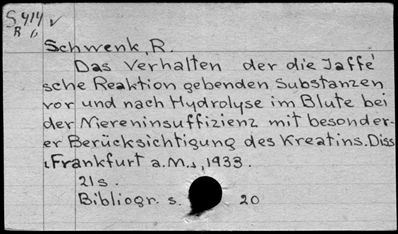 S414 v
B6
Schwenk, R.
Das Verhalten der die Jaffé
sche Reaktion gebenden Substanzen
vor und nach Hydrolyse im Blute bei
der Niereninsuffizienz mit besonder-
er Berücksichtigung des Kreatins. Diss
Frankfurt a.M., 1933.
21s.
Bibliogr. s. 20